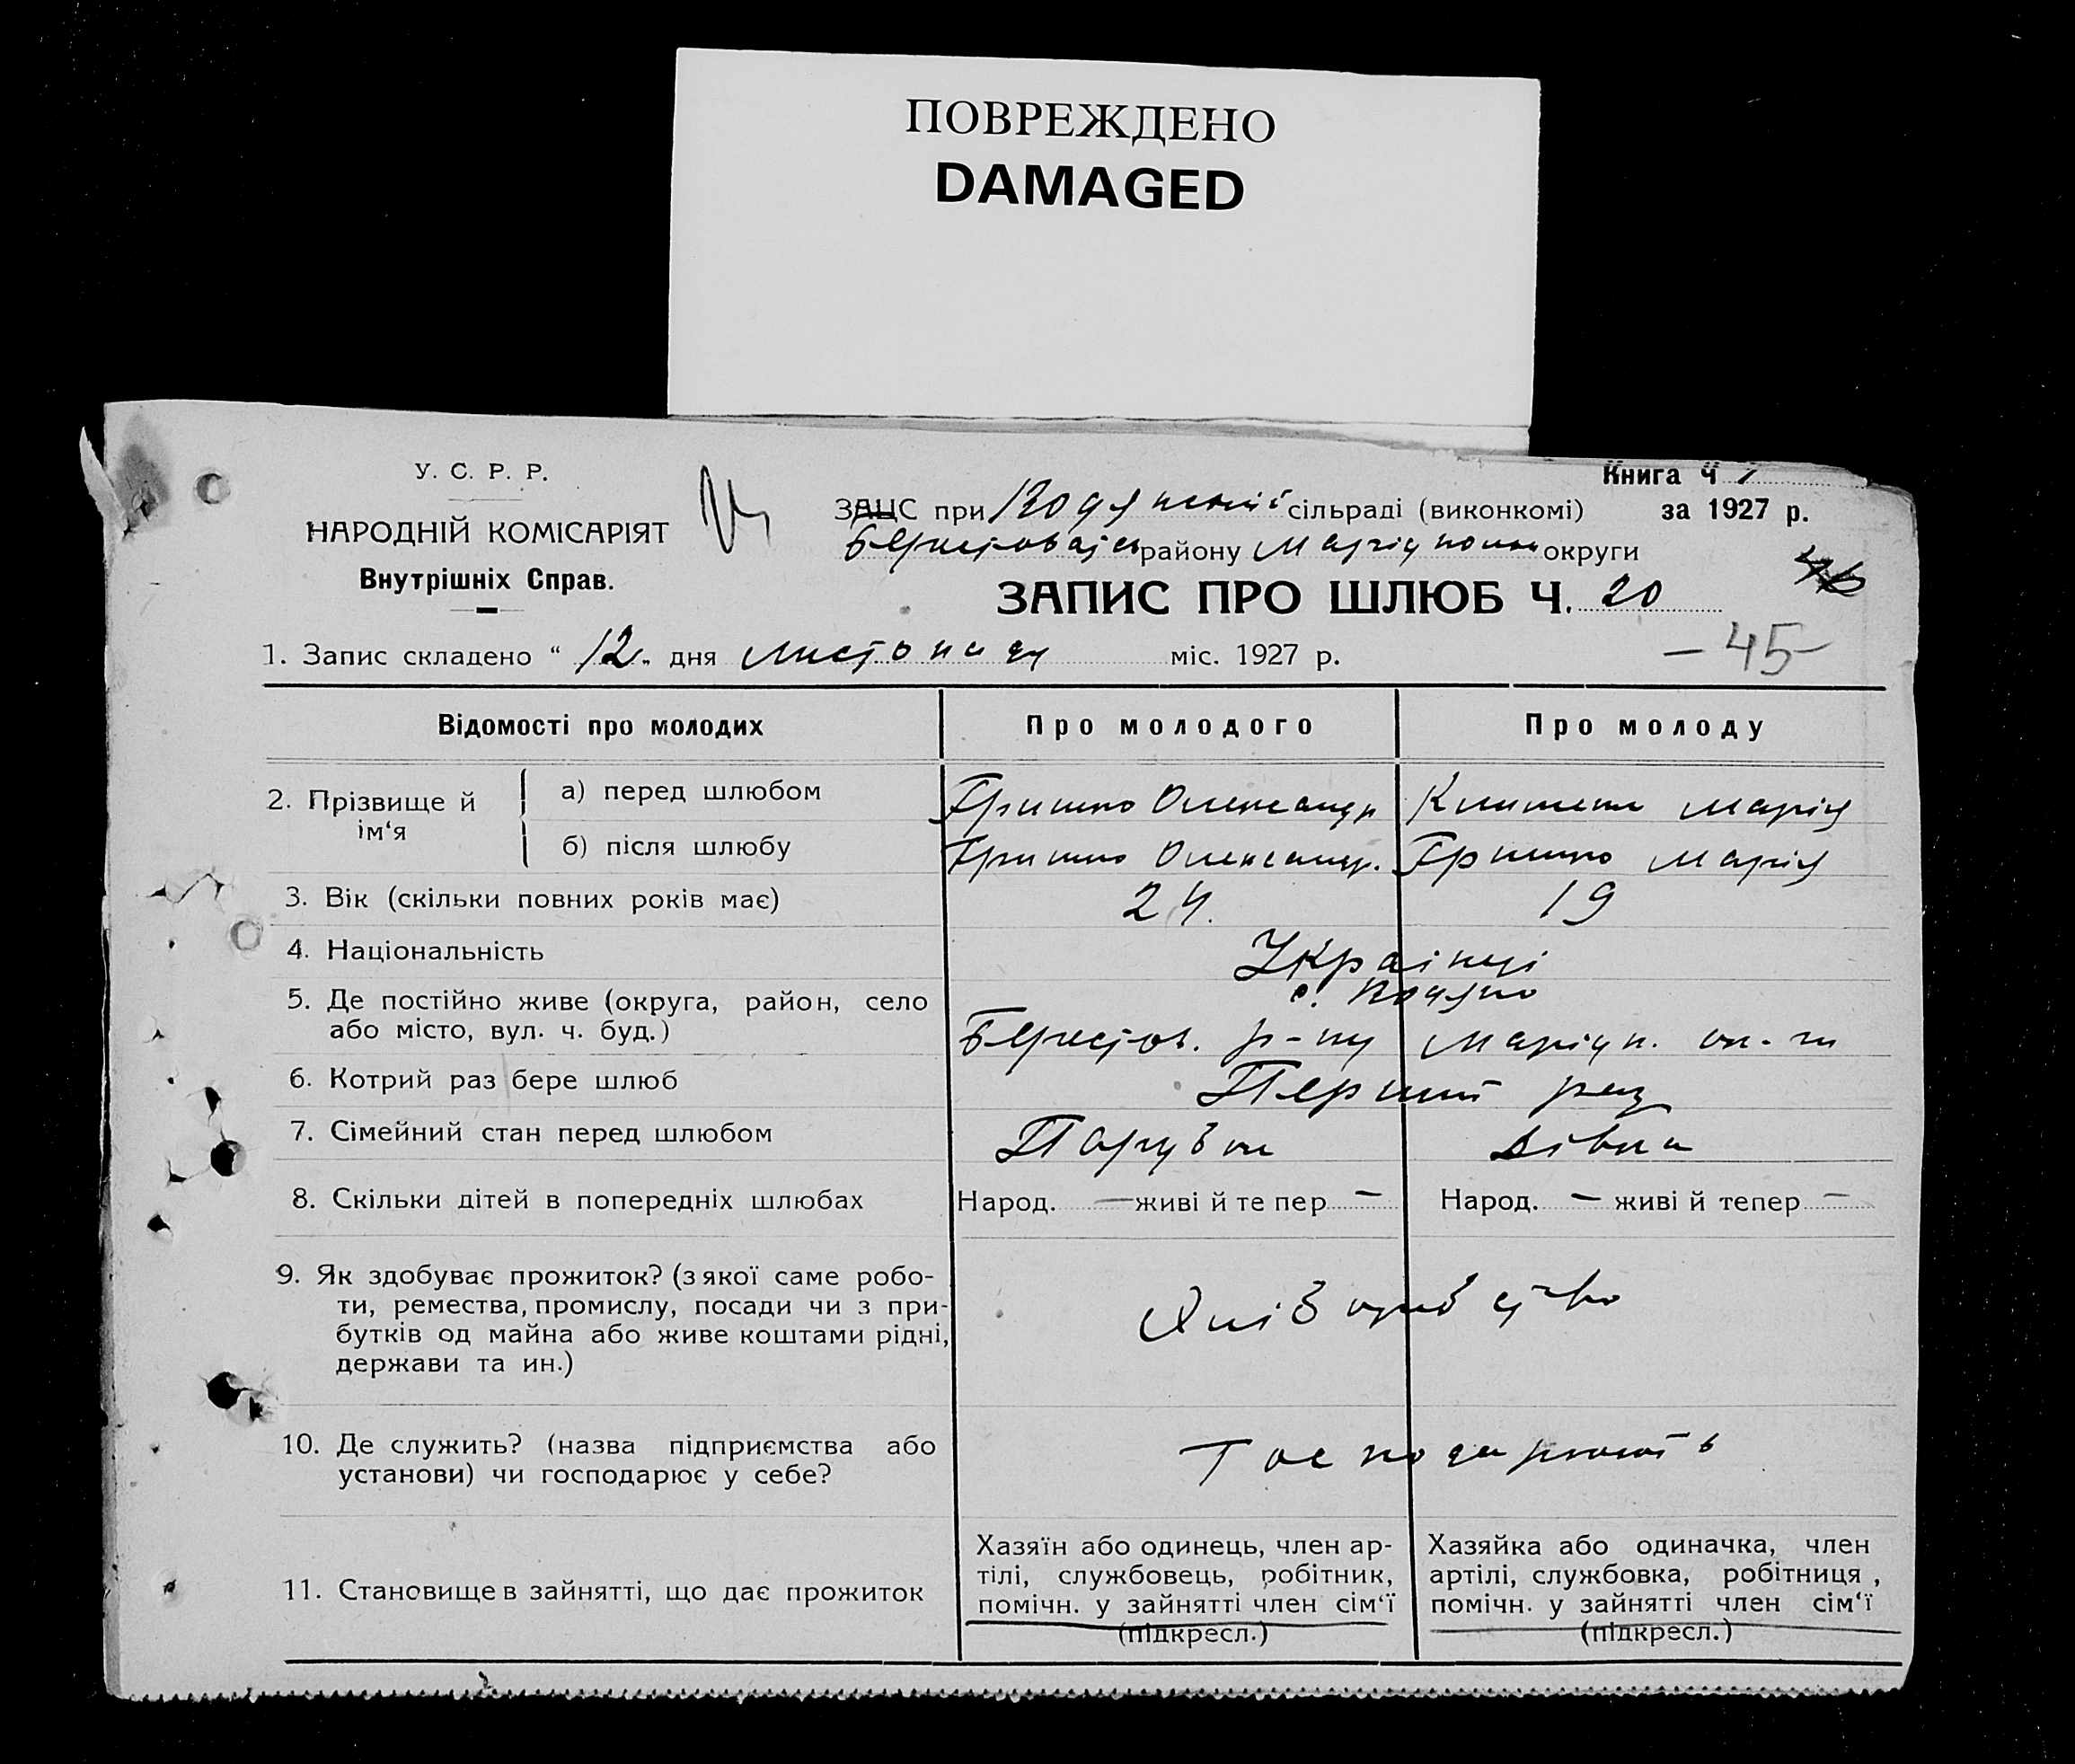 ПОВРЕЖДЕНО
DAMAGED
У. С. Р. Р.
НАРОДНІЙ КОМІСАРІЯТ
Внутрішніх Справ.
Книга Ч 1
ЗАЦС при сільраді (виконкомі) за 1927 р.
району Маріупольск округи
ЗАПИС ПРО ШЛЮБ Ч. 20
46
1. Запис складено “ 12 „ дня листопада міс. 1927 р.
— 45 —
Відомості про молодих Про молодого Про молоду
2. Прізвище й ім‘я
а) перед шлюбом Гришко Олександр Марія
б) після шлюбу Гришко Олександр. Гришко Марія
3. Вік (скільки повних років має) 24. 19
4. Національність Українці
5. Де постійно живе (округа, район, село
або місто, вул. ч. буд.) Берестов. р-ну Маріуп. ок-ги
6. Котрий раз бере шлюб Перший раз
7. Сімейний стан перед шлюбом Парубок Дівка
8. Скільки дітей в попередніх шлюбах Народ. — живі й тепер — Народ. — живі й тепер —
9. Як здобуває прожиток? (з якої саме робо-
ти, ремества, промислу, посади чи з при-
бутків од майна або живе коштами рідні,
держави та ин.)
Хліборобство
10. Де служить? (назва підприємства або
установи) чи господарює у себе?
Господарюють
11. Становище в зайнятті, що дає прожиток
Хазяїн або одинець, член ар-
тілі, службовець, робітник,
помічн. у зайнятті член сім‘ї
(підкресл.)
Хазяйка або одиначка, член
артілі, службовка, робітниця,
помічн. у зайнятті член сім‘ї
(підкресл.)